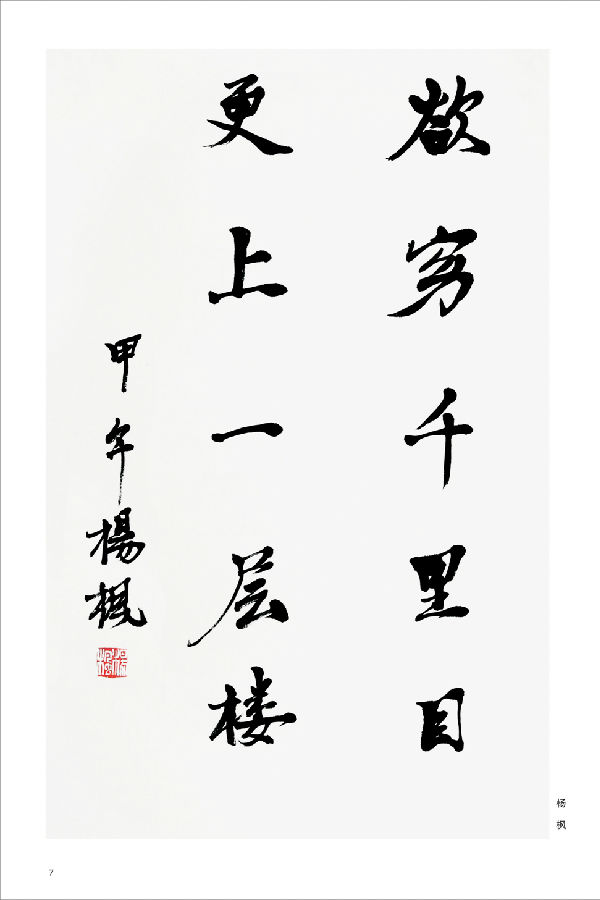 欲穷千里目
更上一层楼
甲午杨枫
杨枫
7